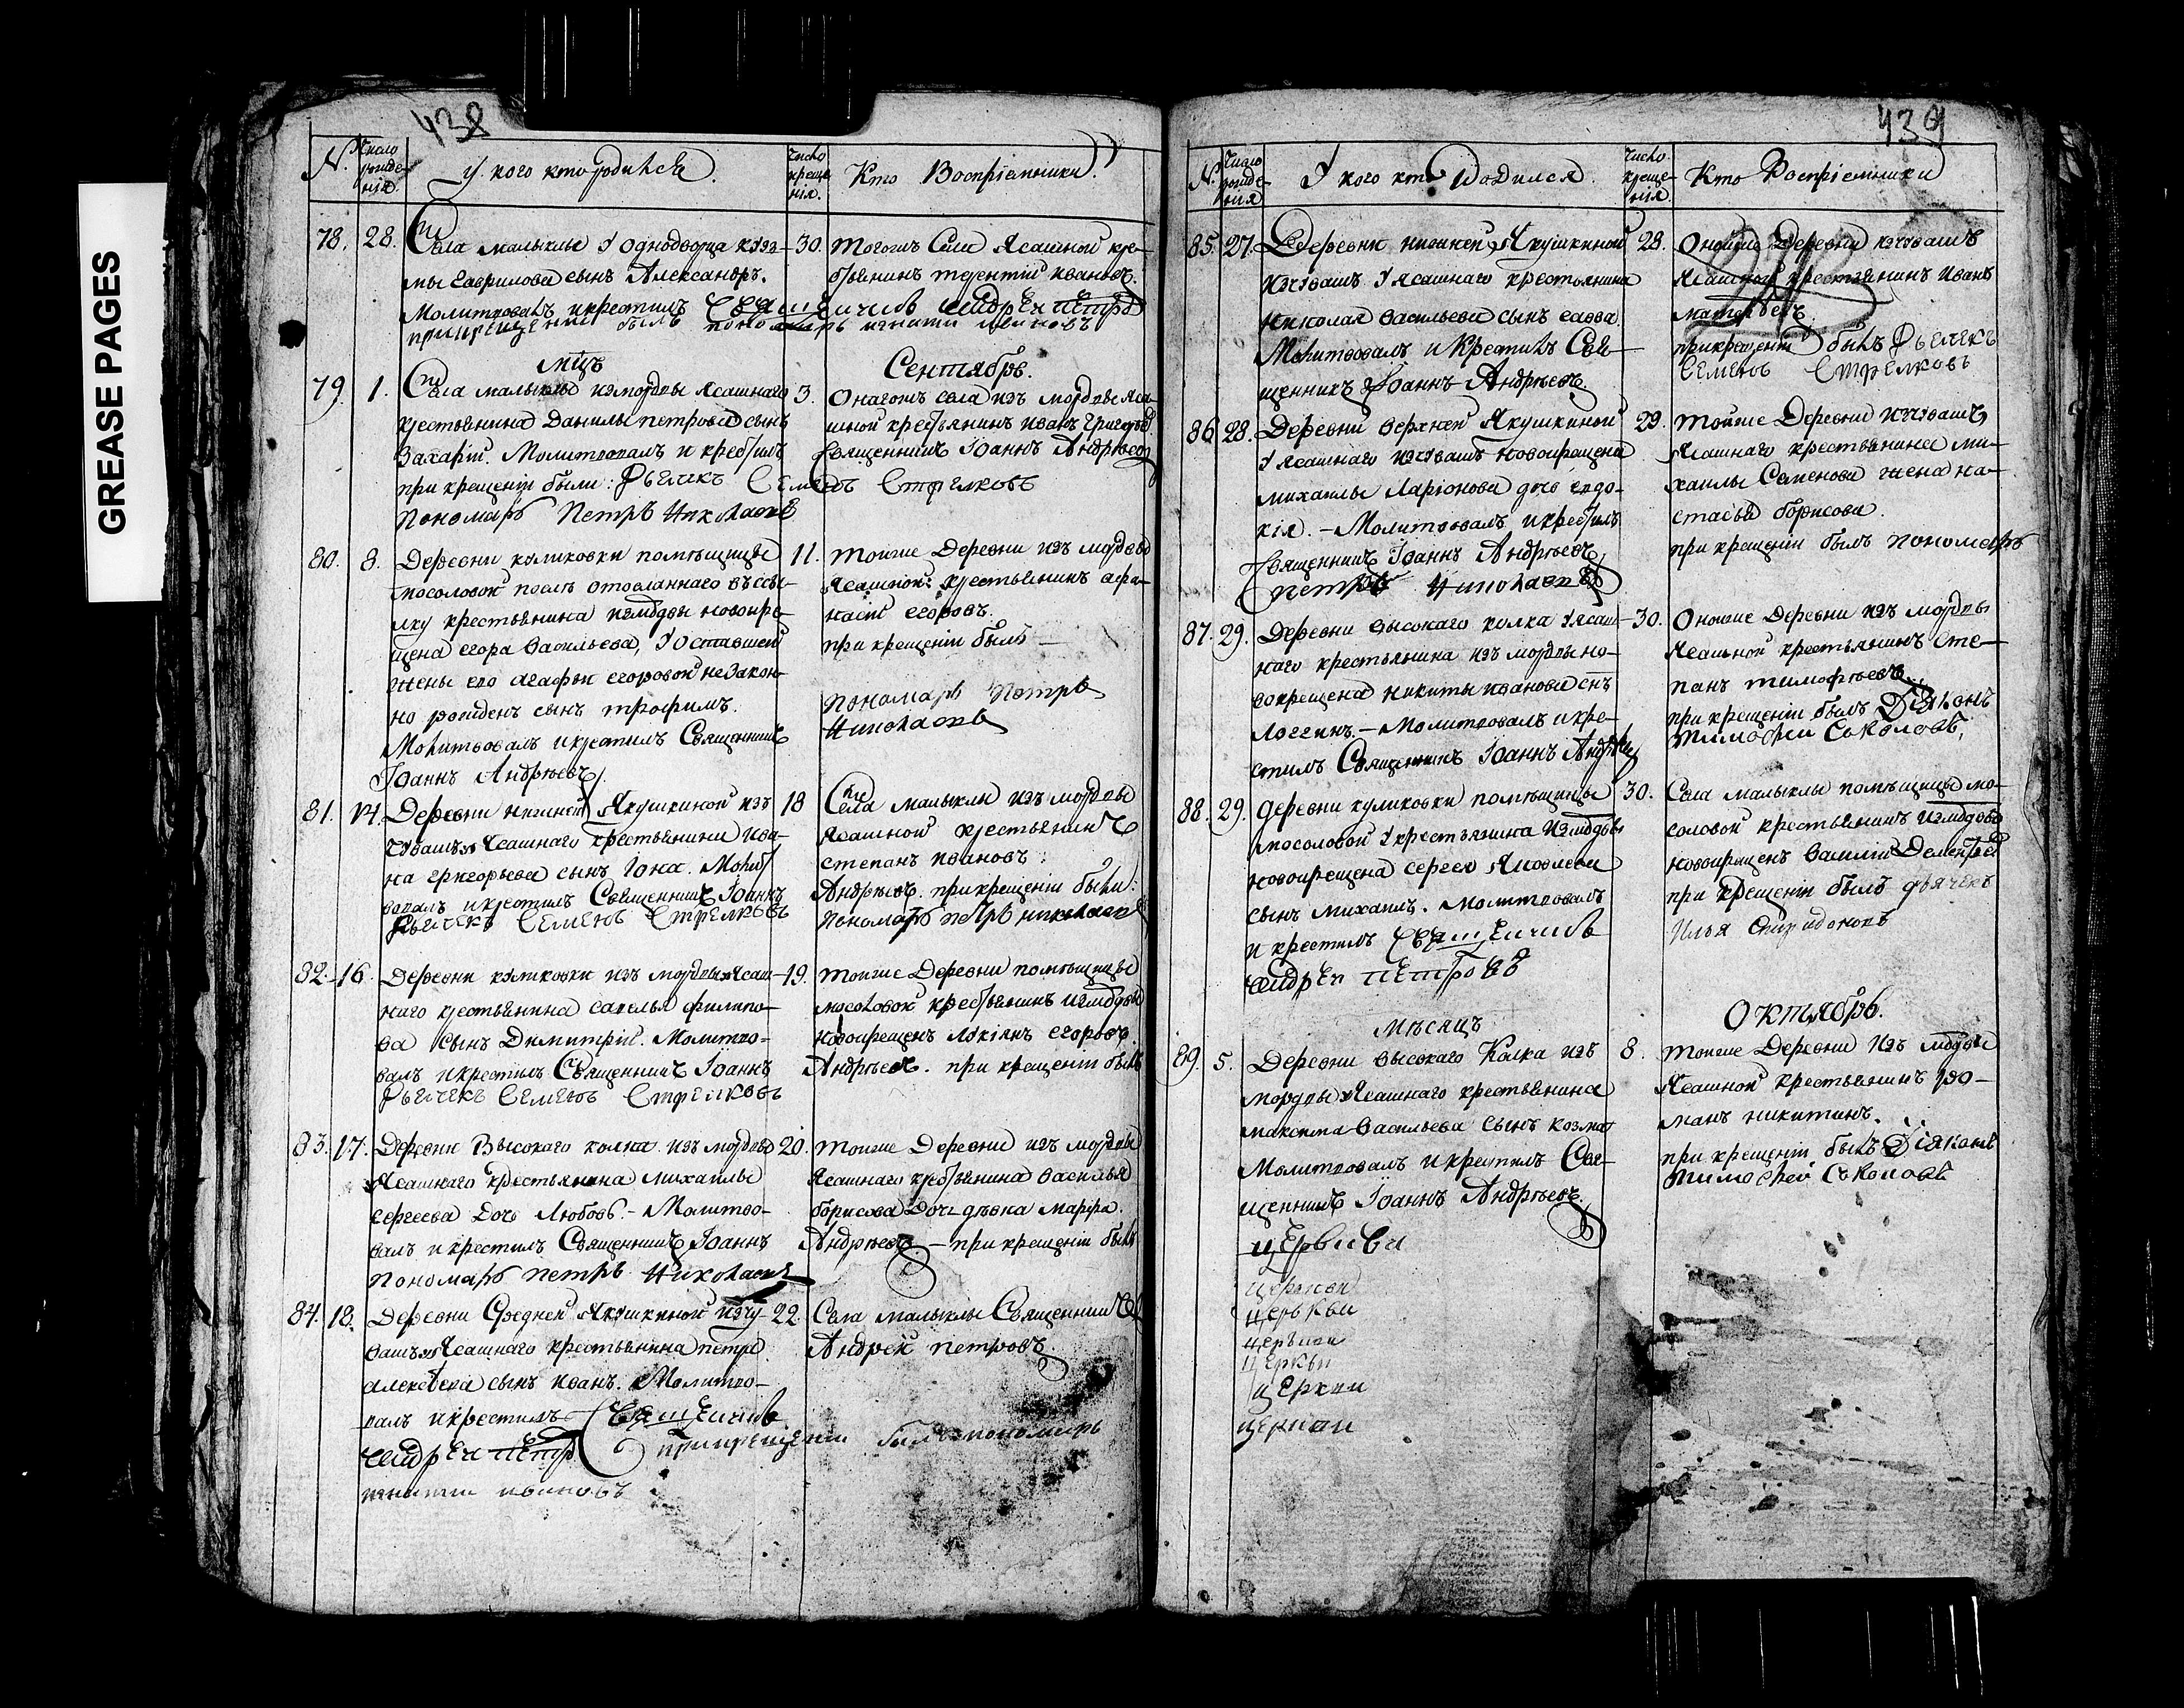 GREASE PAGES
438
№
Число рожде-нія.
У кого кто родился.
Число креще-нія.
Кто Воспріемники.
78. 28.
Села малыклы У однодворца кузь-
мы гаврилова сынъ Александръ.
Молитвовалъ и крестилъ Священникъ Андреи Петровъ
при крещении былъ пономарь игнати ивановъ
30.
Тогожъ Села Ясашной кре-
стьянинъ терентій ивановъ.
мѣцъ Сентябрь.
79. 1.
Села малыклы изъ мордвы ясашнаго
крестьянина Данилы петрова сынъ
Захарій. Молитвовалъ и крестилъ
при крещеніи были: Дьячекъ Семенъ Стрелковъ
Пономарь Петръ Николаевъ
3.
Онагожъ села изъ мордвы яса-
шной крестьянинъ иванъ григорьевъ
Священникъ Іоаннъ Андреевъ
80. 8.
Деревни куликовки помѣщицы
мосоловой послѣ отосланнаго въ ссы-
лку крестьянина изъ мордвы новокре-
щена егора васильева, У оставшей
жены его агафьи егоровой не закон-
но рожденъ сынъ трофимъ.
Молитвовалъ и крестилъ Священникъ
Іоаннъ Андреевъ.
11.
Тойже Деревни изъ мордвы
Ясашной крестьянинъ афа-
насій егоровъ.
при крещеніи былъ —
пономарь Петръ
Николаевъ
81. 14.
Деревни нижней Якушкиной изъ
чувашъ ясашнаго крестьянина ива-
на григорьева сынъ Іона. Молит
вовалъ и крестилъ Священникъ Іоаннъ
Дьячекъ Семенъ Стрелковъ
18
Села малыклы изъ мордвы
Ясашной крестьянинъ
степанъ ивановъ.
Андреевъ. при крещеніи были:
Пономарь петръ николаевъ
82. 16.
Деревни куликовки изъ мордвы ясаш-
наго крестьянина савелья филипо-
ва сынъ Димитрій. Молитво-
валъ и крестилъ Священникъ Іоаннъ
Дьячекъ Семенъ Стрелковъ
19.
Тойже Деревни помѣщицы
мосоловой крестьянинъ изъ мордвы
новокрещенъ Лукіянъ егоровъ.
Андреевъ. при крещеніи былъ
83. 17.
Деревни Высокаго колка изъ мордвы
Ясашнаго крестьянина михаилы
сергеева Дочь Любовь. — Молитво-
валъ и крестилъ Священникъ Іоаннъ
Пономарь петръ Николаевъ
20.
Тойже Деревни изъ мордвы
Ясашнаго крестьянина василья
борисова Дочь девка марфа.
Андреевъ. — при крещеніи былъ
84. 18.
Деревни Средней Якушкиной изъ чу-
вашъ Ясашнаго крестьянина петра
алексеева сынъ иванъ. Молитво-
валъ и крестилъ Священникъ
Андреи Петр
при крещении былъ пономарь
игнатии ивановъ
22.
Села малыклы Священникъ
Андрей петровъ.
439
№
Число рожде-нія
У кого кто родился.
Число креще-нія.
Кто Воспріемники
85. 27.
Деревни нижней Якушкиной
изъ чувашъ У ясашнаго крестьянина
николая васильева сынъ савва
Молитвовалъ и Крестилъ Свя-
щенникъ Іоаннъ Андреевъ.
28.
Оной же Деревни изъ чувашъ
Ясашной крестьянинъ иванъ
при крещеніи былъ Дьячекъ
Семенъ Стрелковъ
86. 28.
Деревни верхней Якушкиной
У ясашнаго изъ чувашъ новокрещена
михаилы Ларіонова дочь евдо-
кія. — Молитвовалъ и крестилъ
Священникъ Іоаннъ Андреевъ
петръ Николаевъ
29.
Тойже Деревни изъ чувашъ
Ясашнаго крестьянина ми-
хаилы Семенова жена на-
стасья борисова.
при крещеніи былъ пономарь
87. 29.
Деревни высокаго колка У ясаш-
наго крестьянина изъ мордвы но-
вокрещена никиты иванова снъ
Логгинъ. — Молитвовалъ и кре-
стилъ Священникъ Іоаннъ Андреевъ
30.
Оной же Деревни изъ мордвы
Ясашной крестьянинъ Сте-
панъ тимофеевъ.
при крещеніи былъ Діяконъ
Тимофеи Соколовъ,
88. 29.
Деревни куликовки помѣщицы
мосоловой У крестьянина изъ мордвы
новокрещена сергея Яковлева
сынъ михаилъ. Молитвовалъ
и крестилъ Священникъ
Андреи Петровъ
30.
Села малыклы помѣщицы мо-
соловой крестьянинъ изъ мордвы
новокрещенъ Василій Дементьев
при крещеніи былъ дьячекъ
Илья Спиридоновъ
Мѣсяцъ Октябрь.
89. 5.
Деревни высокаго Колка изъ
мордвы Ясашнаго крестьянина
максима васильева сынъ козма
Молитвовалъ и крестилъ Свя-
щенникъ Іоаннъ Андреевъ.
8.
Тойже Деревни изъ мордвы
Ясашной крестьянинъ Ро-
манъ никитинъ.
при крещеніи былъ Діяконъ
Тимофей Соколовъ
церкви
церкви
церькви
церкви
церкви